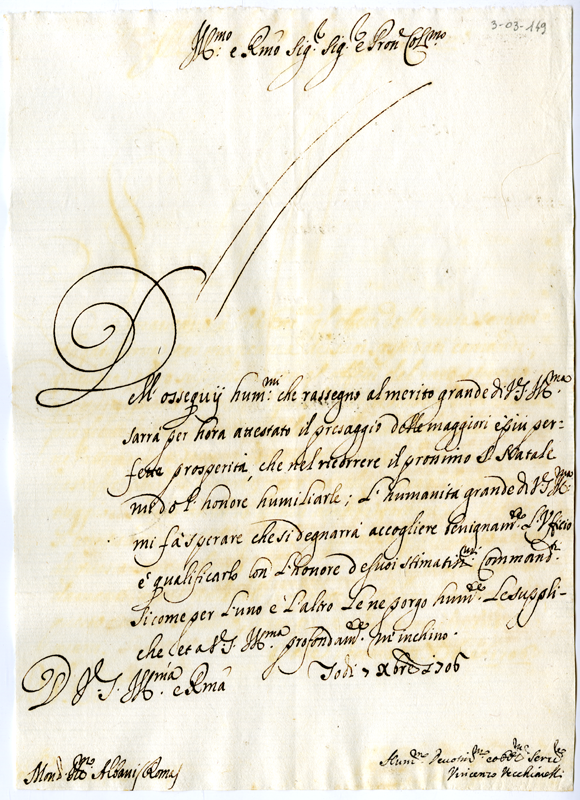 3-03-149
Ill.mo e Rmo Sig.r Sig.r e Pron Coll.mo
Dell'ossequij hum.mi che rassegno al merito grande di V.S. Ill.ma
sarrà per hora attestato il presaggio delle maggiori e più per-
fette prosperità, che nel ricorrere il prossimo S. Natale
mi dò l'honore humiliarle; L'humanità grande di V.S. Ill.ma
mi fà sperare che si degnarrà accogliere benignam.te l'Ufficio
e qualificarlo con l'honore de suoi stimatis.mi Command.ti
sicome per l'uno e l'altro Le ne porgo hum.me Le suppli-
che et a V.S. Ill.ma profondam.te m'inchino.
D V.S. Ill.ma e Rma Todi 7 Xbre 1706
Mons.r Albani Roma
Hum.mo Devotis.mo et obb.mo Serv.re
Vincenzo Vecchiarelli